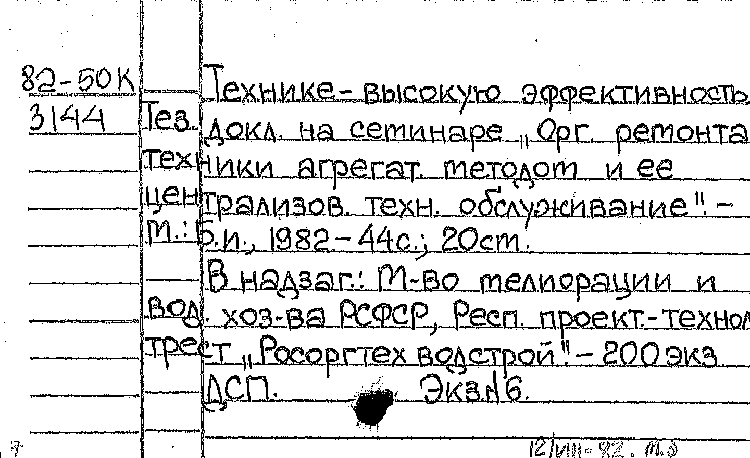 82-50К Технике-высокую эффективность
3144 Тез. докл. на семинаре „Орг. ремонта
техники агрегат. методом и ее
централизов. техн. обслуживание". -
М.: Б.и., 1982-44с.; 20см.
В надзаг.: М-во мелиорации и
вод. хоз-ва РСФСР, Респ. проект.-технол
трест „Росоргтехводстрой". - 200 экз
ДСП. Экз№6.
12/VIII-82.